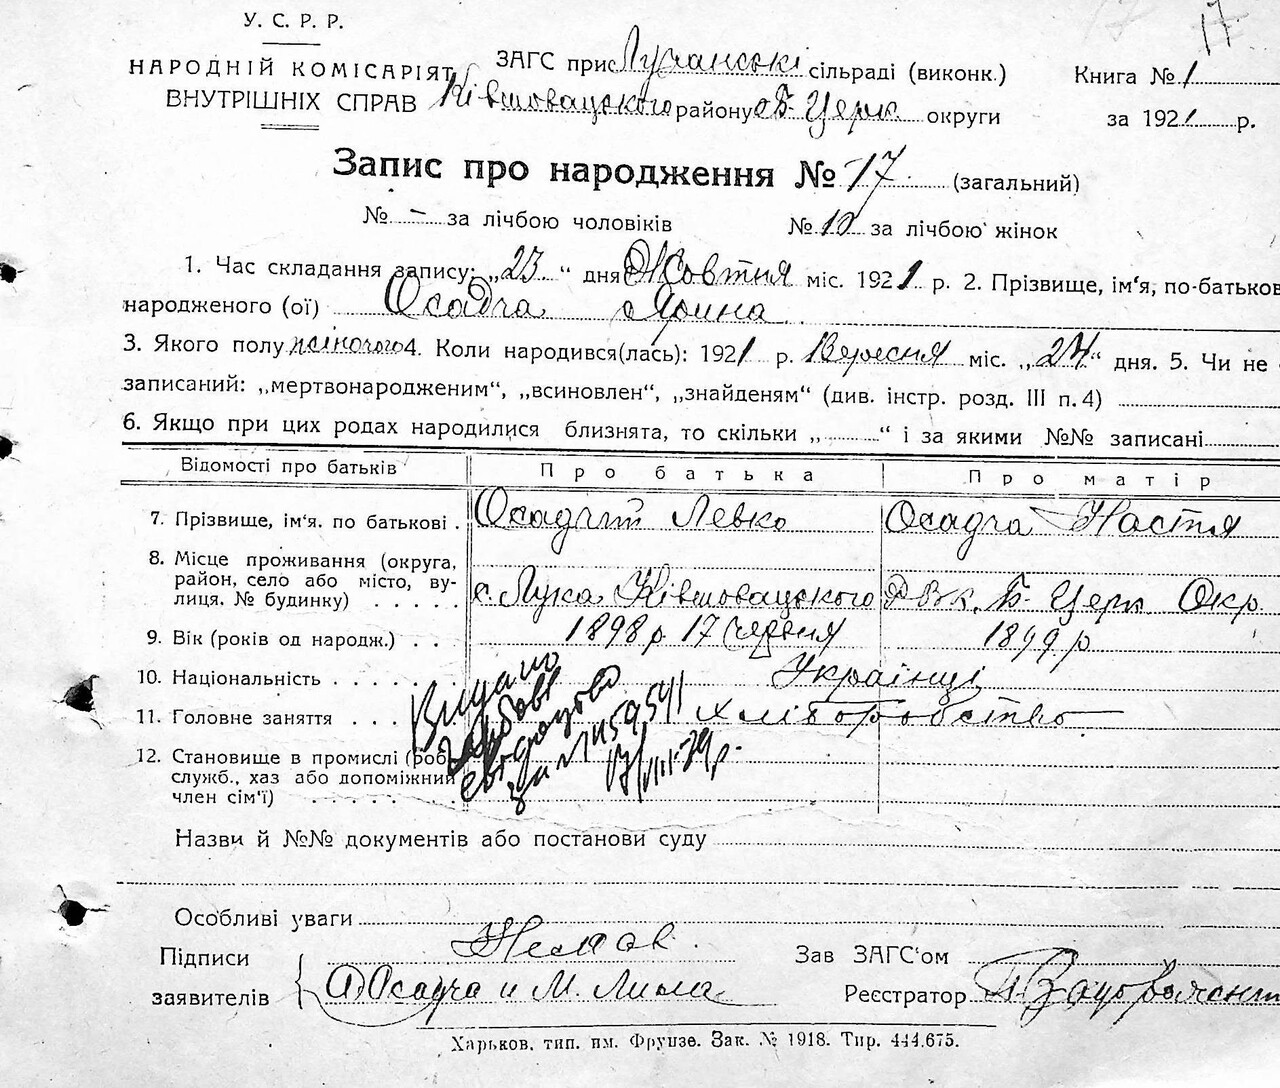 17
У. С. Р. Р.
НАРОДНІЙ КОМІСАРІЯТ
ВНУТРІШНІХ СПРАВ
ЗАГС при Лучанські сільраді (виконк.)
Ківшовацского району Б-Церк. округи
Книга № 1
за 1921 р.
Запис про народження № 17 (загальний)
№ - за лічбою чоловіків № 10 за лічбою жінок
1. Час складання запису: „23“ дня Жовтня міс. 1921 р. 2. Прізвище, ім'я, по-батьков
народженого (ої) Осадча Ярина
3. Якого полу жіночого 4. Коли народився(лась): 1921 р. Вересня міс. „24“ дня. 5. Чи не
записаний: „мертвонародженим“, „всиновлен“, „знайденям“ (див. інстр. розд. III п. 4)
6. Якщо при цих родах народилися близнята, то скільки „ “ і за якими №№ записані
Відомості про батьків Про батька Про матір
7. Прізвище, ім'я. по батькові . Осадчий Левко Осадча Настя
8. Місце проживання (округа,
район, село або місто, ву-
лиця. № будинку) . . . . . с. Лука Ківшовацского Б-Церк Окр.
9. Вік (років од народж.) . . 1898 р 17 червня 1899 р
10. Національність . . . . . . Українці
11. Головне заняття . . . . хліборобство
12. Становище в промислі (роб.
служб., хаз або допоміжний
член сім'ї) . . . . . .
Видано
свідоцтво
за №
17/III-29 р.
Назви й №№ документів або постанови суду
Особливі уваги
Підписи
заявителів
Осадча и М. Лила
Зав ЗАГС'ом
Реєстратор
Харьков. тип. им. Фрунзе. Зак. № 1918. Тир. 444.675.